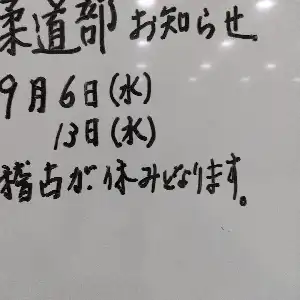 柔道部 お知らせ。
9月6日(水)
13日(水)
稽古が休みとなります。